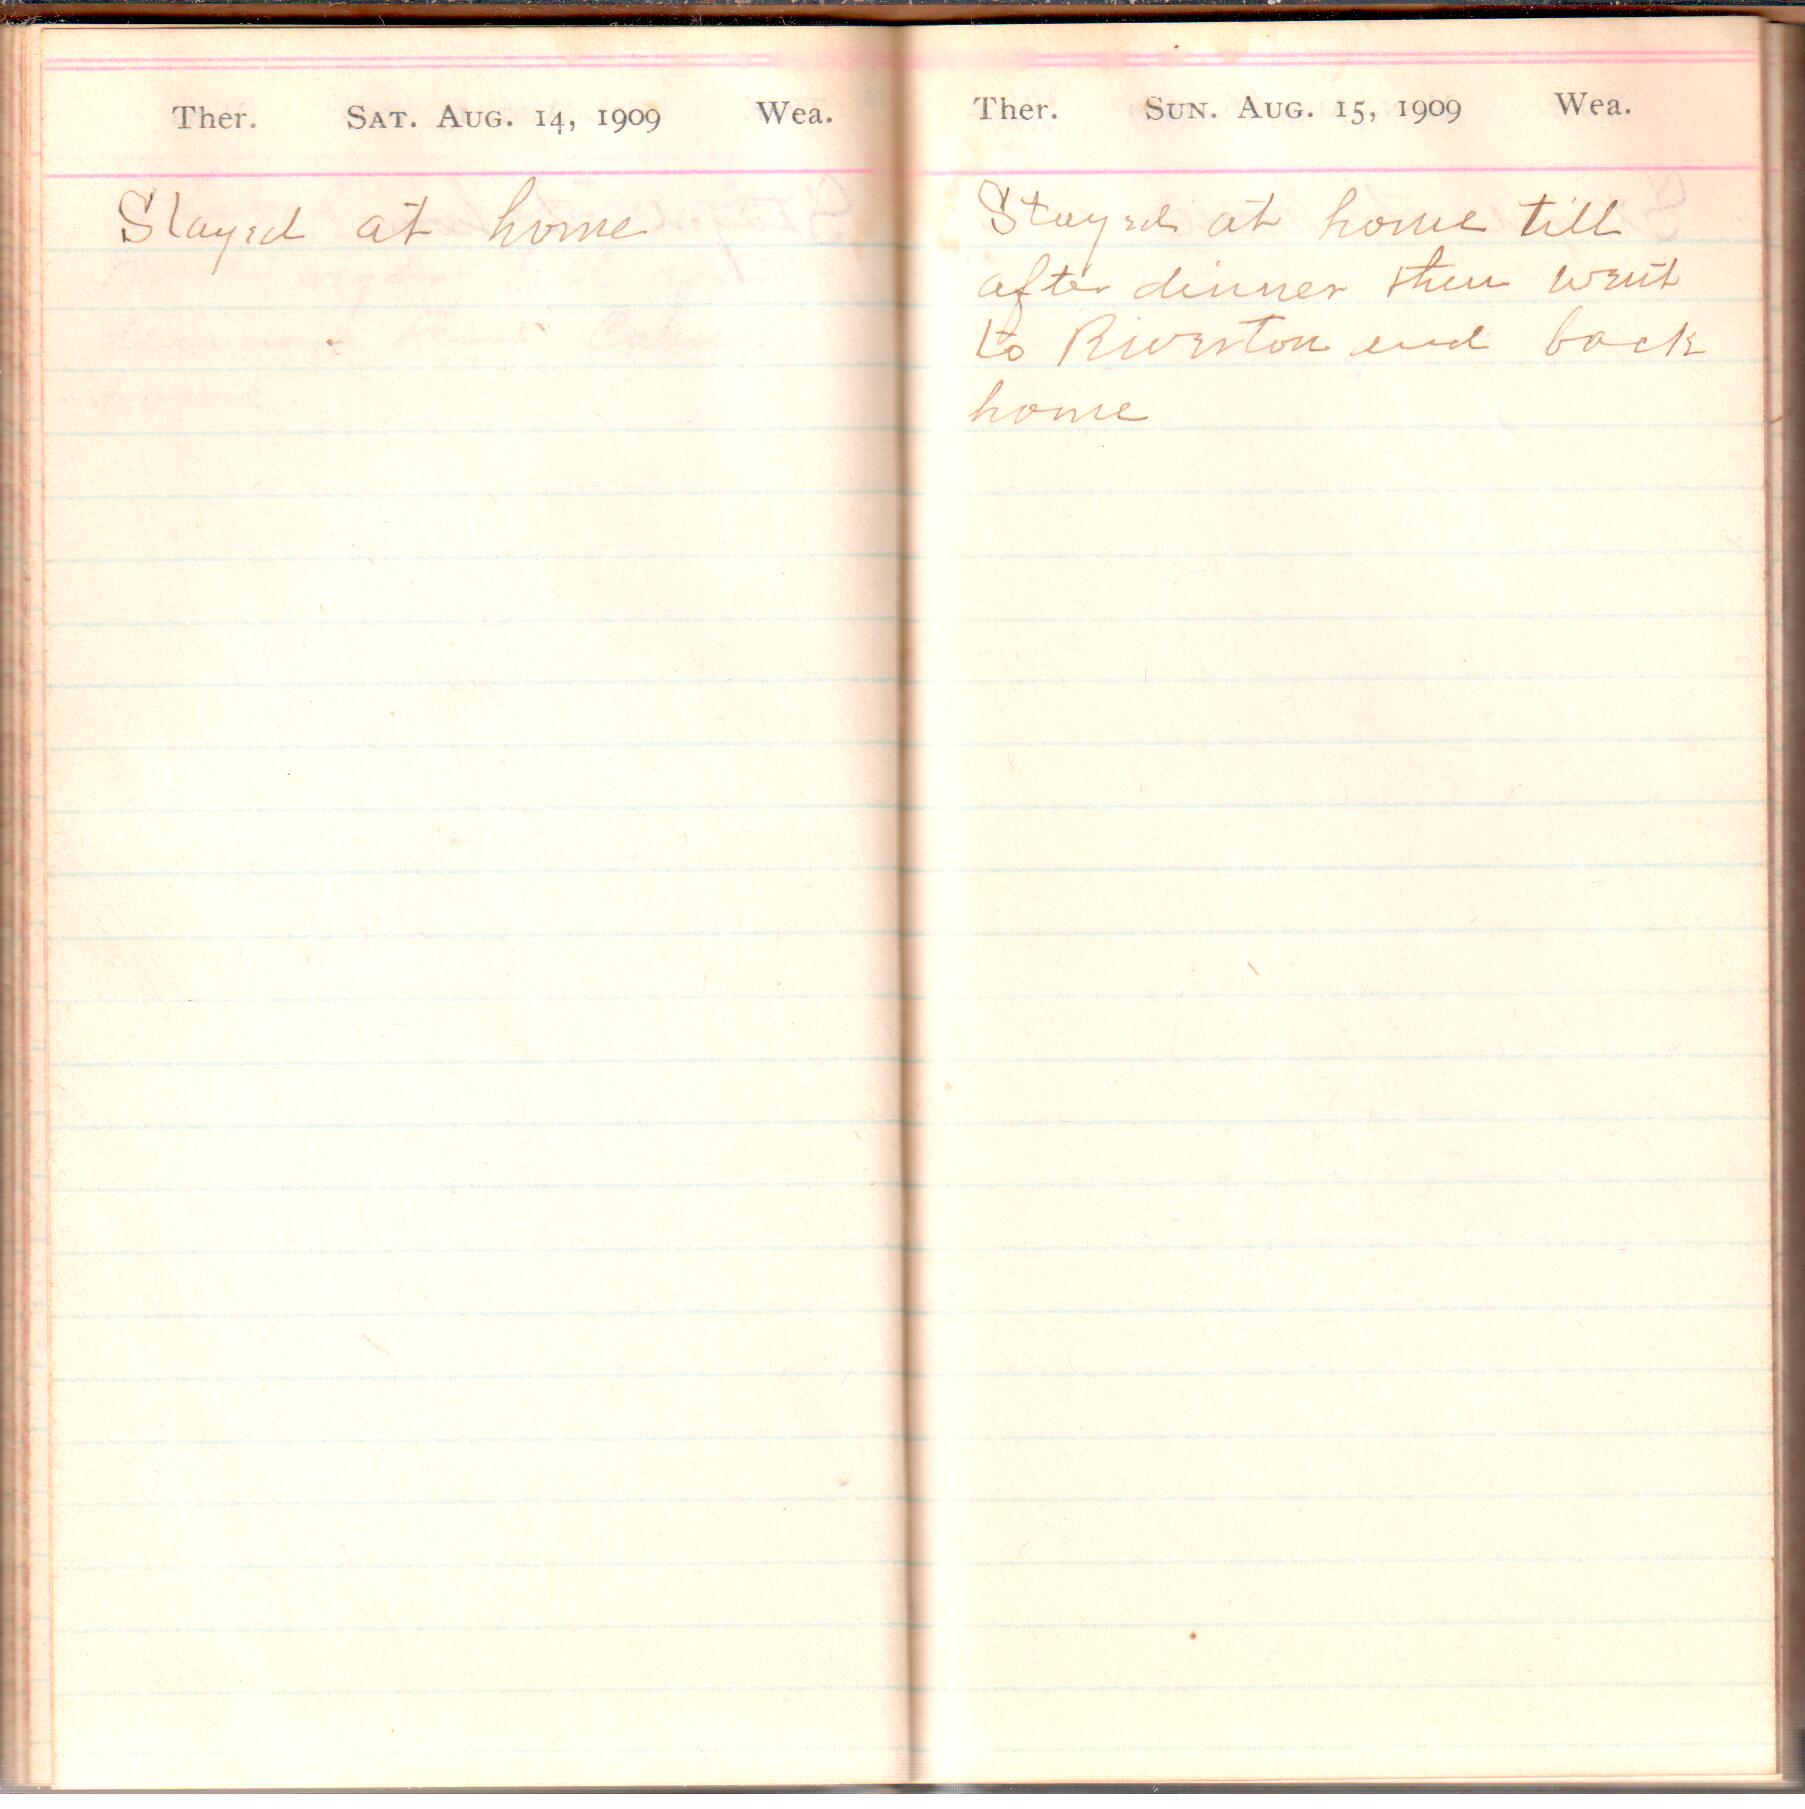 Ther. Sat. Aug. 14, 1909 Wea.
Stayed at home
Ther. Sun. Aug. 15, 1909 Wea.
Stayed at home till
after dinner then went
to Riverton and back
home